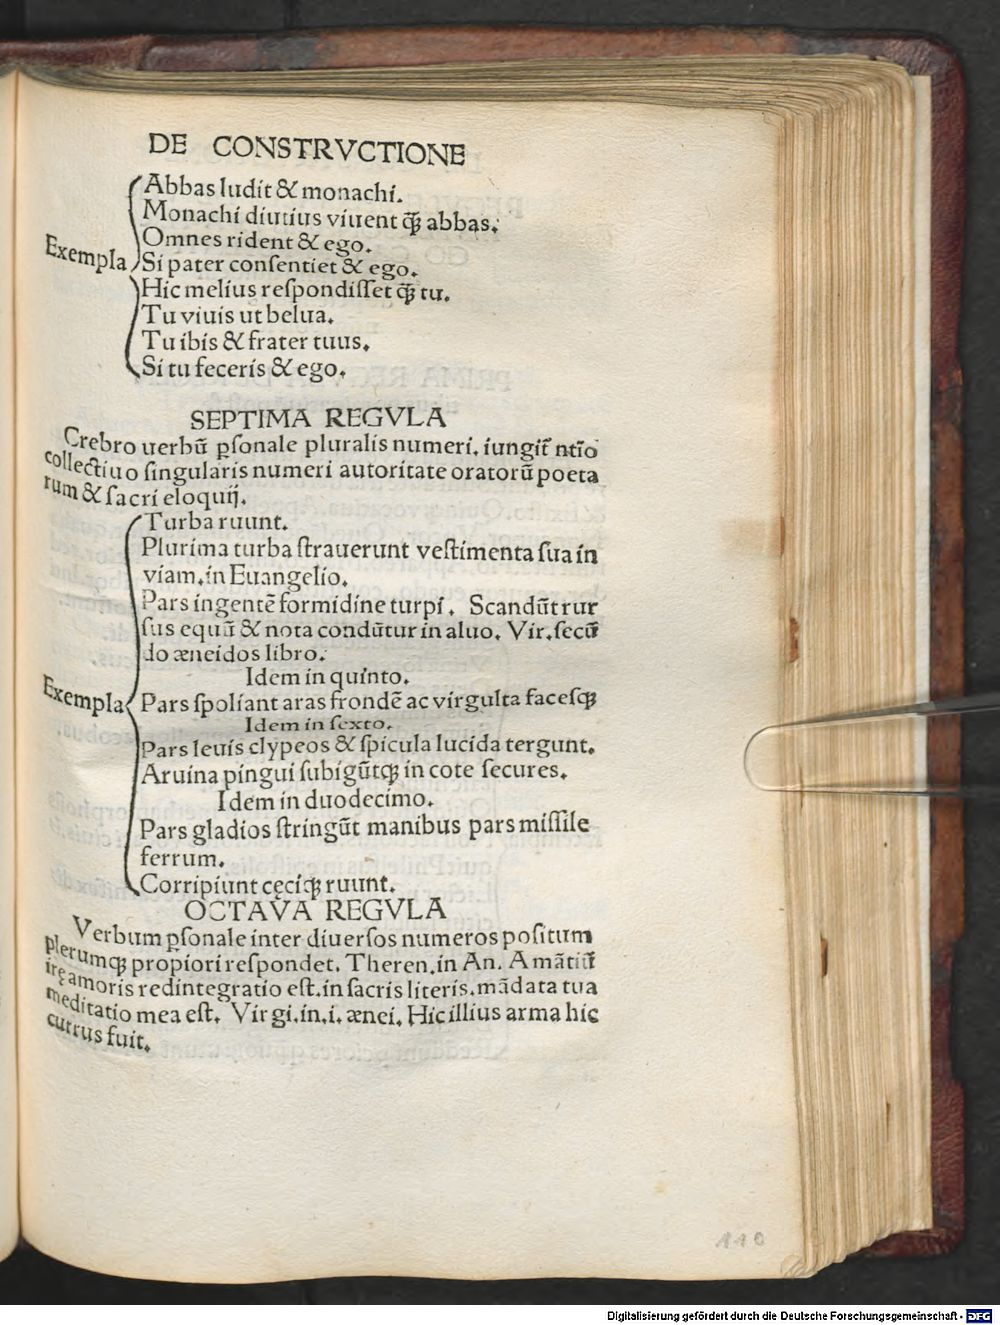 DE CONSTRVCTIONE
Abbas ludit & monachi.
Monachi diutius viuent q̃ꝫ abbas.
Omnes rident & ego.
Exempla
Si pater consentiet & ego.
Hic melius respondisset q̃ꝫ tu.
Tu viuis ut belua.
Tu ibis & frater tuus.
Si tu feceris & ego.
SEPTIMA REGVLA
Crebro uerbũ ꝑsonale pluralis numeri, iungit᷑ nt̃io
collectiuo singularis numeri autoritate oratorũ poeta
rum & sacri eloquij.
Turba ruunt.
Plurima turba strauerunt vestimenta sua in
viam, in Euangelio.
Pars ingentẽ formidine turpi. Scandũt rur
sus equũ & nota condũtur in aluo. Vir. secũ
do æneidos libro.
Idem in quinto.
Exempla
Pars spoliant aras frondẽ ac virgulta facesqꝫ
Idem in sexto.
Pars leuis clypeos & spicula lucida tergunt.
Aruina pingui subigũtqꝫ in cote secures.
Idem in duodecimo.
Pars gladios stringũt manibus pars missile
ferrum.
Corripiunt cęciqꝫ ruunt.
OCTAVA REGVLA
Verbum ꝑsonale inter diuersos numeros positum
plerumqꝫ propiori respondet. Theren. in An. Amãtiũ
irę amoris redintegratio est. in sacris literis. mãdata tua
meditatio mea est. Virgi. in. i. ænei. Hic illius arma hic
currus fuit.
110
Digitalisierung gefördert durch die Deutsche Forschungsgemeinschaft - DFG